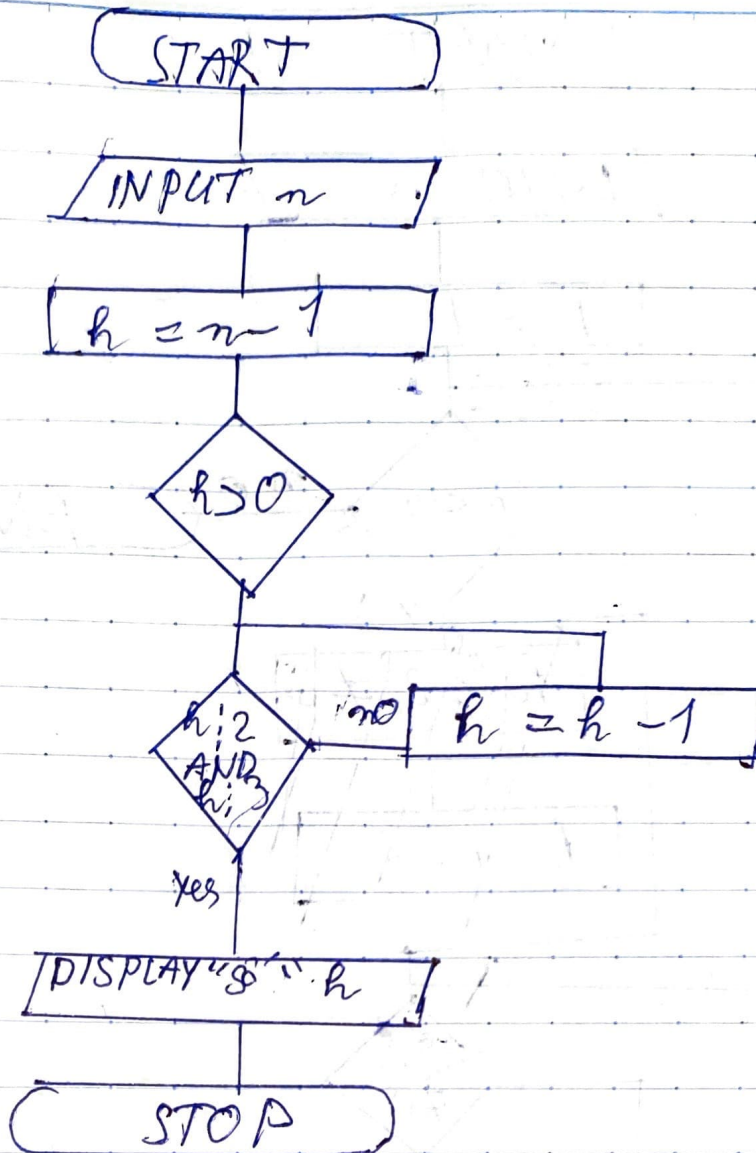 START
INPUT n
h = n - 1
h > 0
h ⋮ 2
AND
h ⋮ 3
no
h = h - 1
Yes
DISPLAY h
STOP